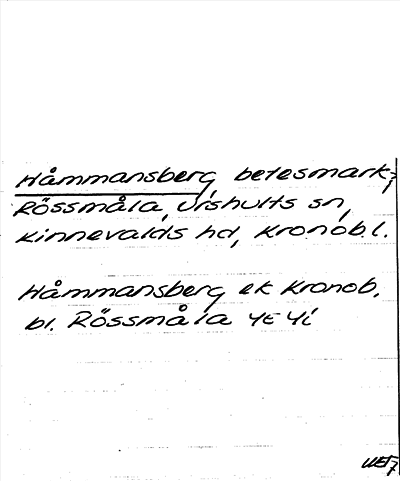 Håmmansberg, betesmark;
Rössmåla, Urshults sn,
Kinnevalds hd, Kronob l.
Håmmansberg ek Kronob.
bl. Rössmåla 4E 4i